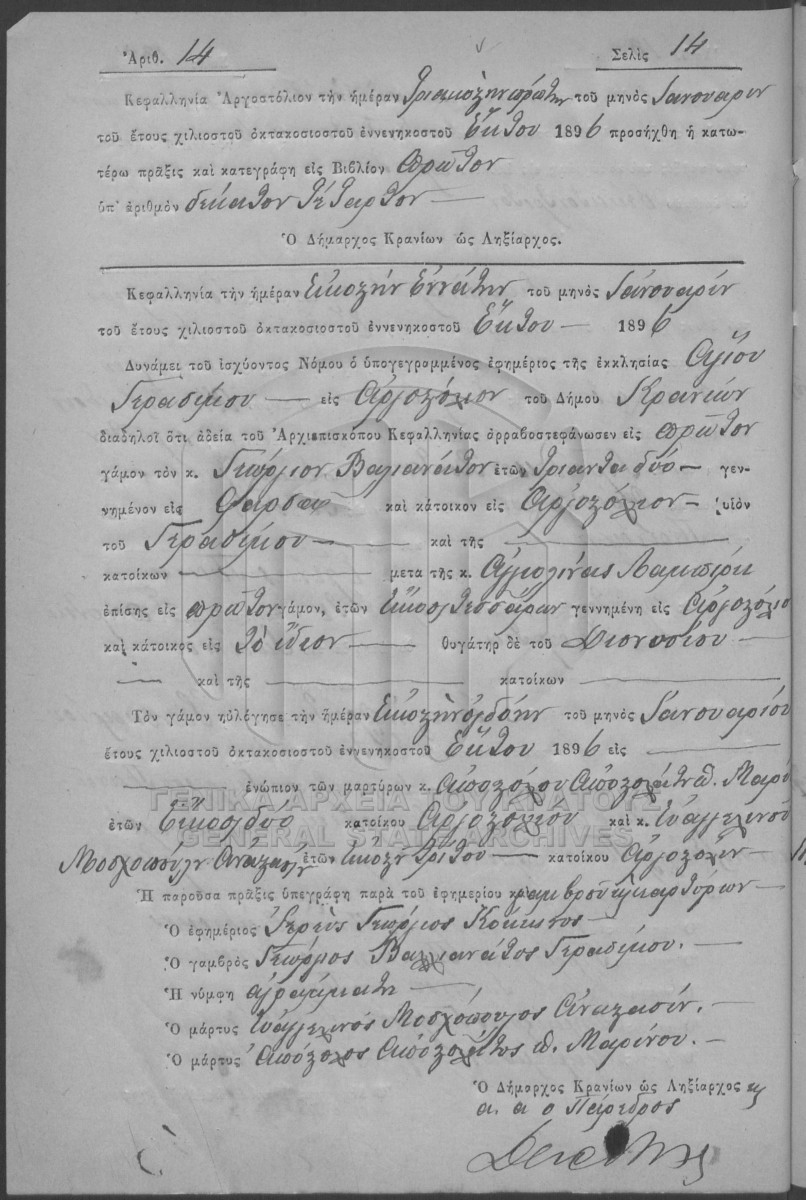 Ἀριθ. 14
Σελὶς 14
Κεφαλληνία Ἀργοστόλιον τὴν ἡμέραν Τριακοστὴν πρώτην τοῦ μηνὸς Ἰανουαρίου
τοῦ ἔτους χιλιοστοῦ ὀκτακοσιοστοῦ ἐννενηκοστοῦ Ἕκτου 1896 προσήχθη ἡ κατω-
τέρω πρᾶξις καὶ κατεγράφη εἰς Βιβλίον πρῶτον
ὑπ' ἀριθμὸν δέκατον τέταρτον
Ὁ Δήμαρχος Κρανίων ὡς Ληξίαρχος.
Κεφαλληνία τὴν ἡμέραν Εἰκοστὴν Ἐννάτην τοῦ μηνὸς Ἰανουαρίου
τοῦ ἔτους χιλιοστοῦ ὀκτακοσιοστοῦ ἐννενηκοστοῦ Ἕκτου 1896
Δυνάμει τοῦ ἰσχύοντος Νόμου ὁ ὑπογεγραμμένος ἐφημέριος τῆς ἐκκλησίας Ἁγίου
Γερασίμου εἰς Ἀργοστόλιον τοῦ Δήμου Κρανίων
διαδηλοῖ ὅτι ἀδείᾳ τοῦ Ἀρχιεπισκόπου Κεφαλληνίας ἀρραβοστεφάνωσεν εἰς πρῶτον
γάμον τὸν κ. Γεώργιον Βαλιανάτον ἐτῶν τριάντα δύο γεν-
νημένον εἰς Φάρσα καὶ κάτοικον εἰς Ἀργοστόλιον υἱὸν
τοῦ Γερασίμου καὶ τῆς
κατοίκων μετὰ τῆς κ. Λαμπίρη
ἐπίσης εἰς πρῶτον γάμον, ἐτῶν Εἴκοσι τεσσάρων γεννημένη εἰς Ἀργοστόλιο
καὶ κάτοικος εἰς τὸ ἴδιον θυγάτηρ δὲ τοῦ Διονυσίου
καὶ τῆς κατοίκων
Τὸν γάμον ηὐλόγησε τὴν ἡμέραν Εἰκοστὴν ὀγδόην τοῦ μηνὸς Ἰανουαρίου
ἔτους χιλιοστοῦ ὀκτακοσιοστοῦ ἐννενηκοστοῦ Ἕκτου 1896 εἰς
ἐνώπιον τῶν μαρτύρων κ. Ἀποστόλου Ἀποστολάτου π. Μαρί
ἐτῶν Εἴκοσι δύο κατοίκου Ἀργοστολίου καὶ κ. Εὐαγγελινοῦ
Μοσχοπούλου Ἀναστασίου ἐτῶν Εἴκοσι τρίτου κατοίκου Ἀργοστολίου
Ἡ παροῦσα πρᾶξις ὑπεγράφη παρὰ τοῦ ἐφημερίου γαμβροῦ μαρτύρων
Ὁ ἐφημέριος Ἱερεὺς Γεώργιος Κόκκινος
Ὁ γαμβρὸς Γεώργιος Βαλιανάτος Γερασίμου.
Ἡ νύμφη ἀγράμματη
Ὁ μάρτυς Εὐαγγελινὸς Μοσχόπουλος Ἀναστασίου.
Ὁ μάρτυς Ἀπόστολος Ἀποστολάτος π. Μαρίνου.
Ὁ Δήμαρχος Κρανίων ὡς Ληξίαρχος
α. α ο Πάρεδρος
ΓΕΝΙΚΑ ΑΡΧΕΙΑ ΤΟΥ ΚΡΑΤΟΥΣ
GENERAL STATE ARCHIVES